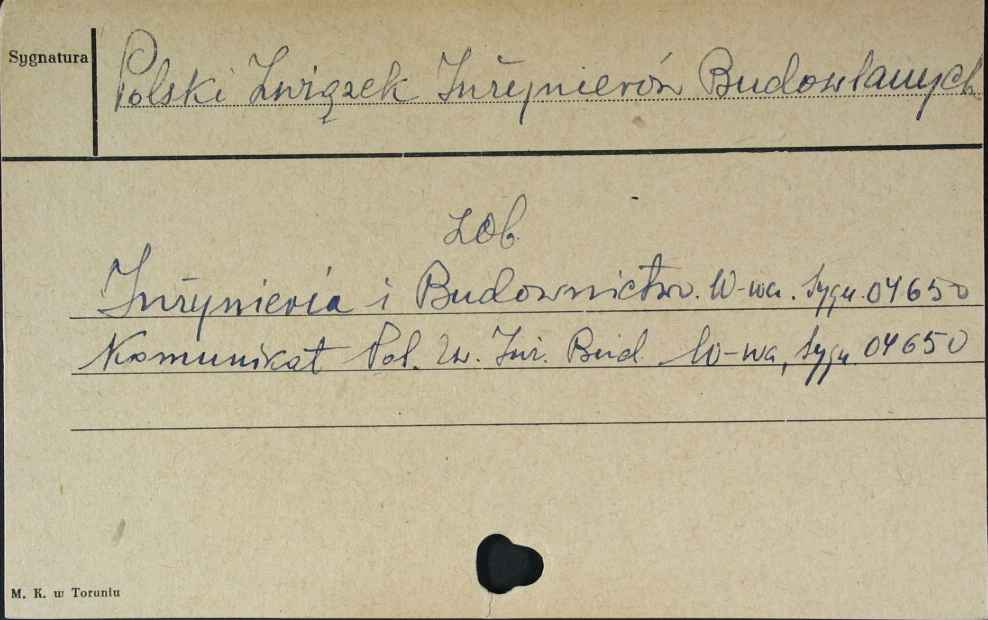 Sygnatura
Polski Związek Inżynierów Budowlanych
zob.
Inżynieria i Budownictwo. W-wa. Sygn. 04650
Komunikat Pol. Zw. Inż. Bud. W-wa, Sygn. 04650
M. K. w Toruniu